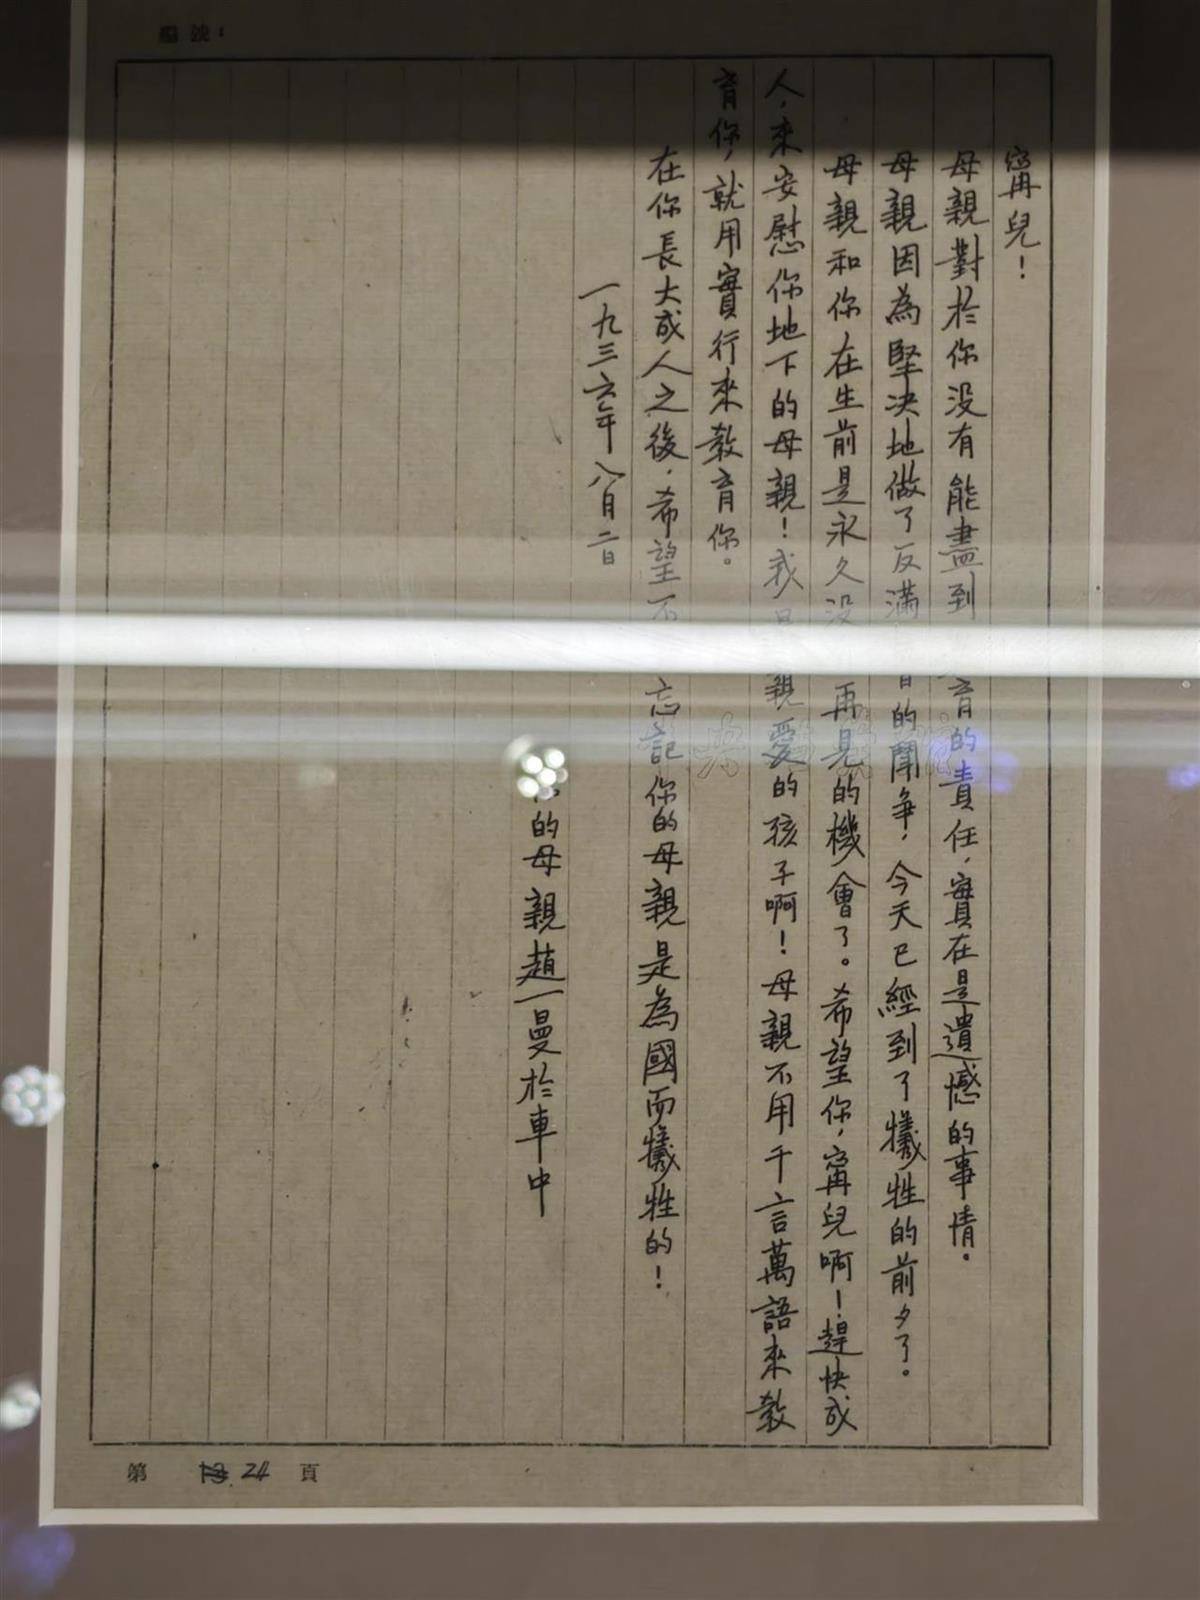 寗兒！
母親對於你没有能盡到育的責任，實在是遺憾的事情。
母親因為堅决地做了反滿的鬪争，今天已經到了犧牲的前夕了。
母親和你在生前是永久没再見的機會了。希望你，寗兒啊！趕快成
人，來安慰你地下的母親！我親愛的孩子啊！母親不用千言萬語來教
育你，就用實行來教育你。
在你長大成人之後，希望不忘記你的母親是為國而犧牲的！
一九三六年八月二日
的母親趙一曼於車中
第 24 頁